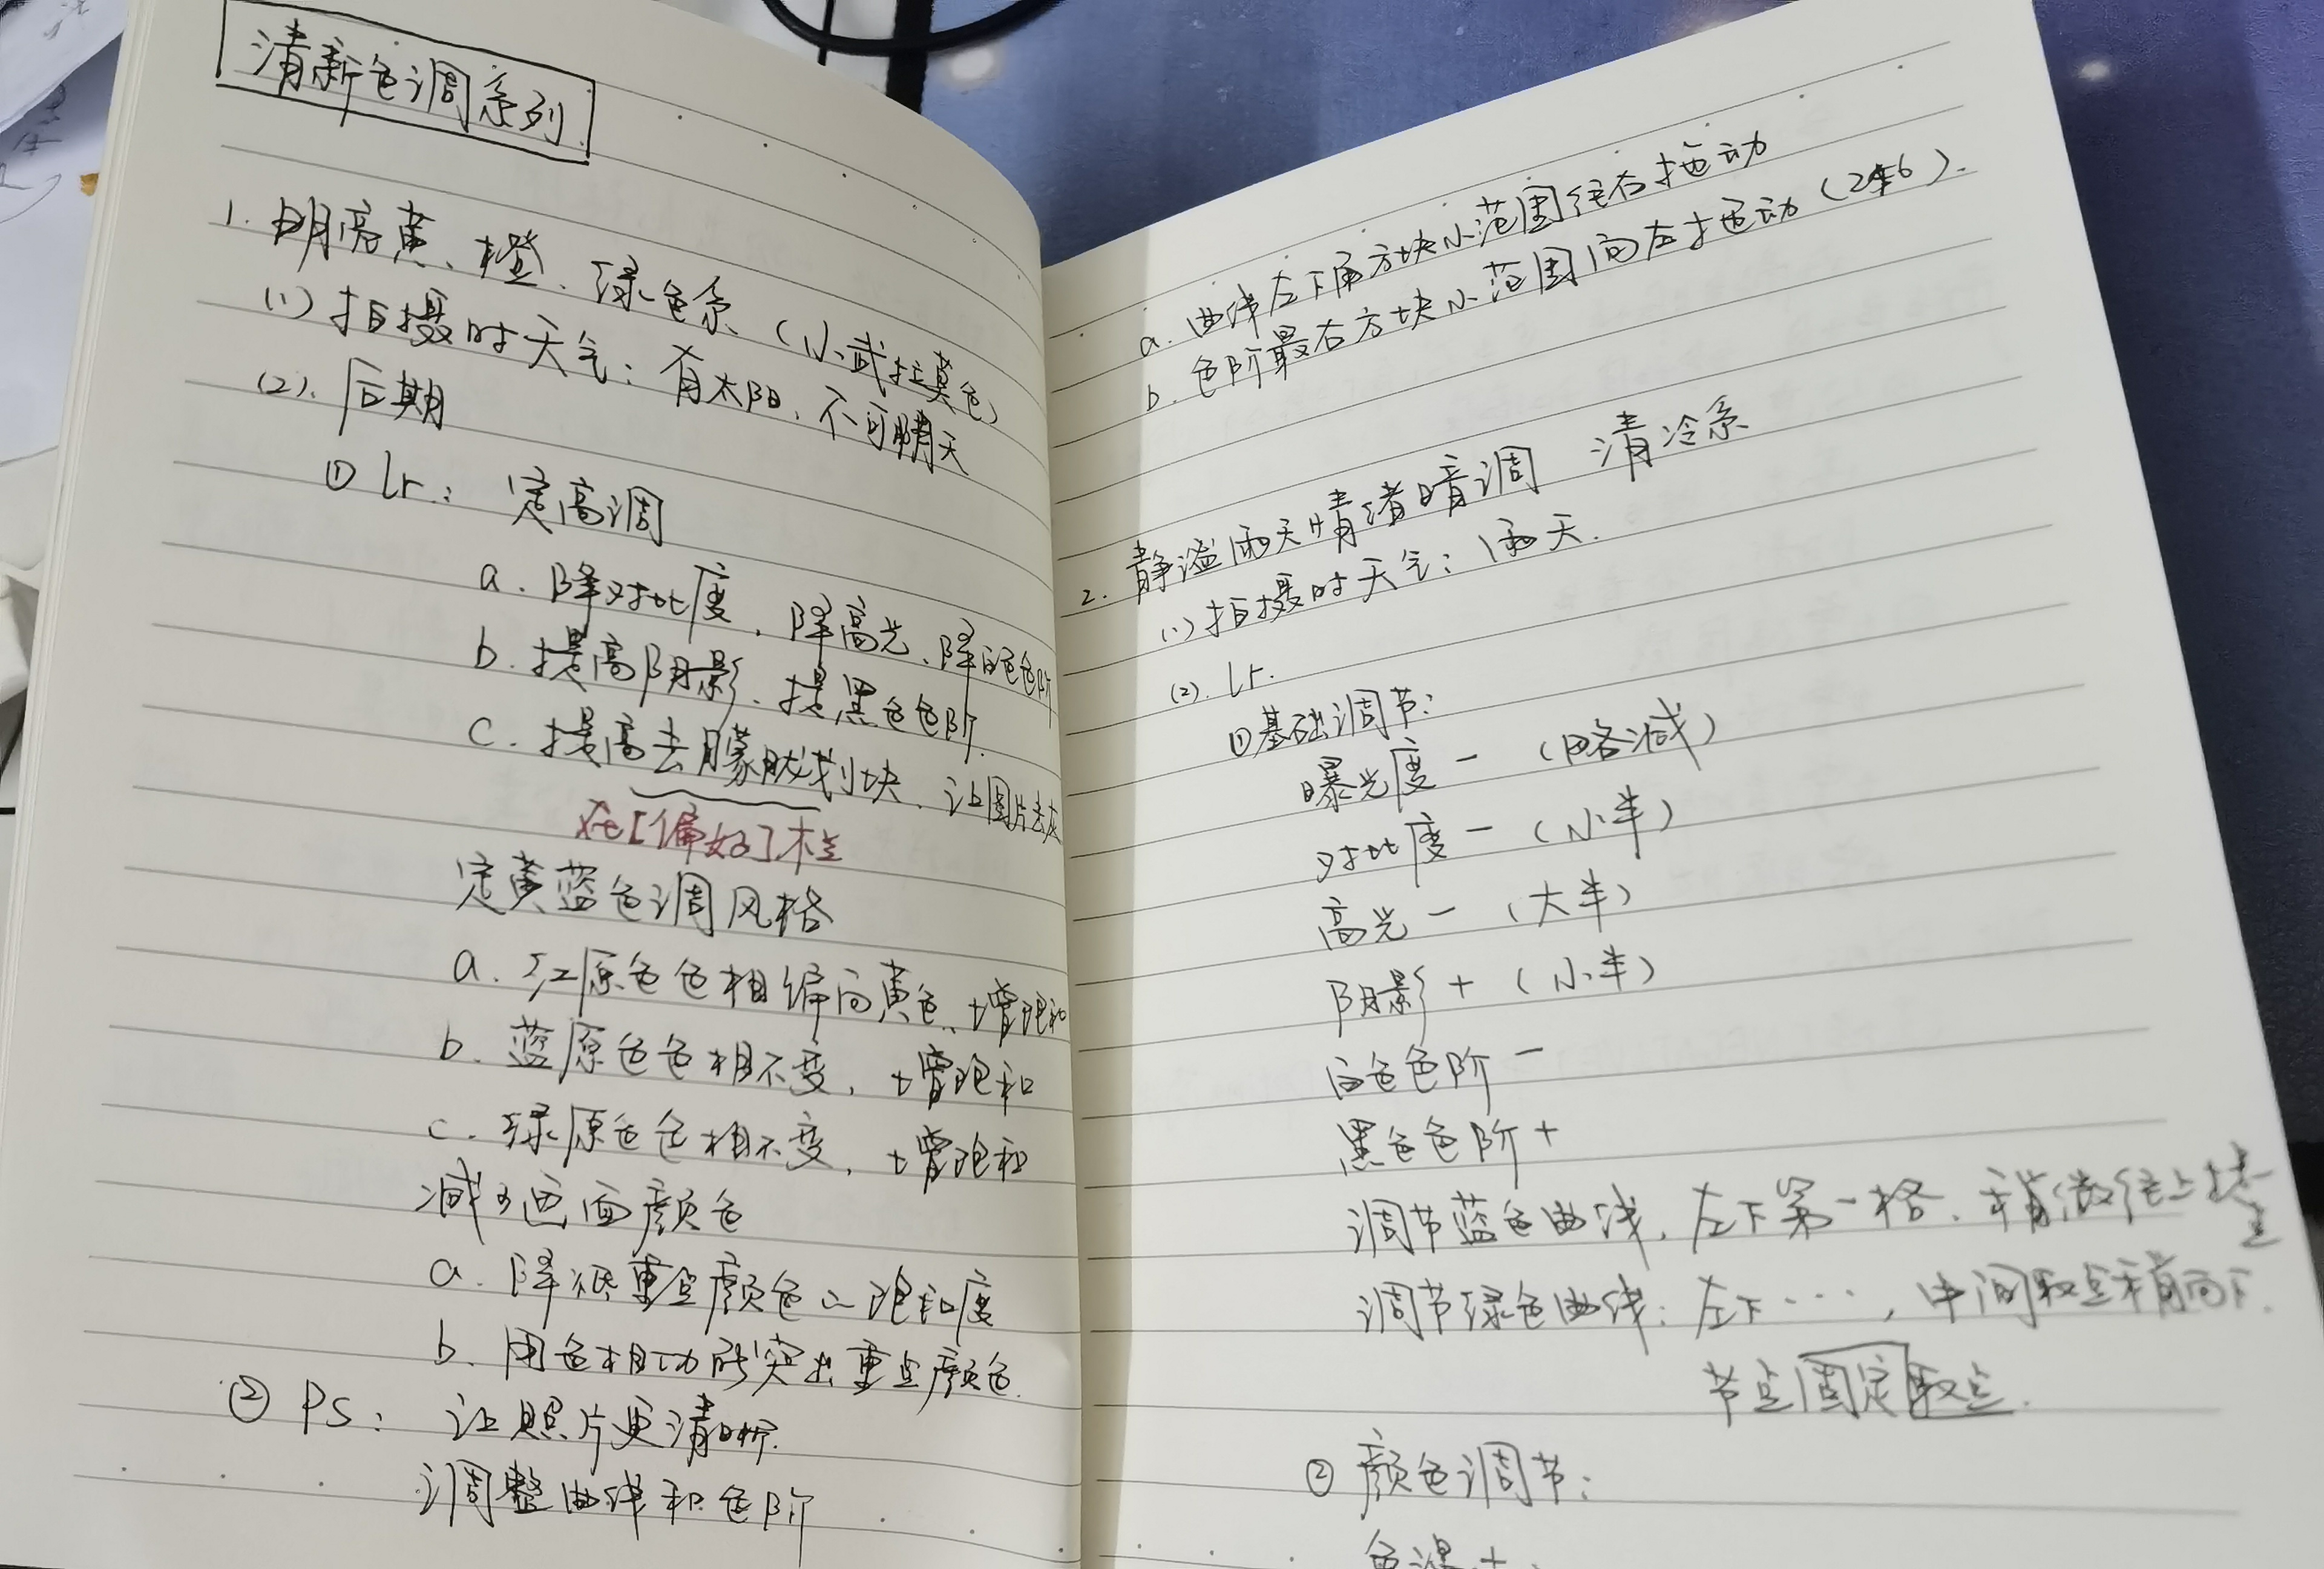 清新色调系列
1. 明亮黄、橙、绿色系（小武拉莫色）
(1) 拍摄时天气：有太阳，不可晴天
(2). 后期
① Lr：定高调
a. 降对比度，降高光、降白色色阶
b. 提高阴影、提黑色色阶.
c. 提高去朦胧划块，让图片去灰
在[偏好]栏
定黄蓝色调风格
a. 红原色色相偏向黄色、增饱和
b. 蓝原色色相不变，增饱和
c. 绿原色色相不变，增饱和
减少画面颜色
a. 降低重点颜色饱和度
b. 用色相功能突出重点颜色.
② PS：让照片更清晰.
调整曲线和色阶
a. 曲线左下角方块小范围往右拖动
b. 色阶最右方块小范围向左拖动（246）.
2. 静谧雨天情绪暗调 清冷系
(1) 拍摄时天气：雨天.
(2). Lr.
①基础调节：
曝光度 -（略减）
对比度 -（小半）
高光 -（大半）
阴影 +（小半）
白色色阶 -
黑色色阶 +
调节蓝色曲线，左下第一格、稍微往上
调节绿色曲线：左下……，中间取点稍向下.
节点固定取点.
② 颜色调节：